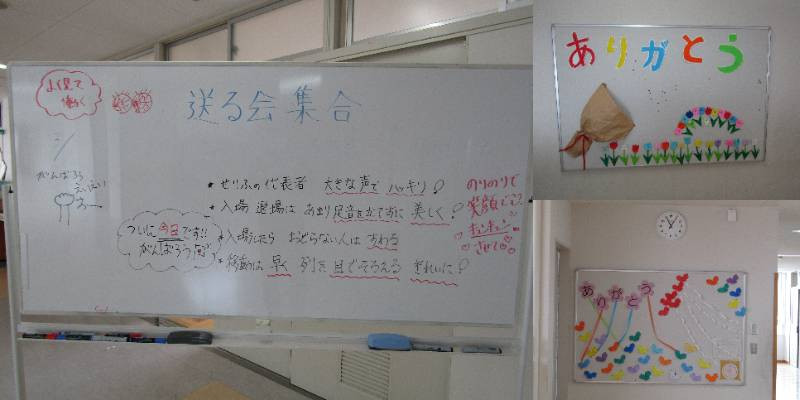 よく見て
働く
送る会 集合
がんばろう
• せりふの代表者 大きな声で ハッキリ！
• 入場 退場は あまり足音を立てずに 美しく！
• 入場したら おどらない人は すわる
• 移動は 早く 列を 目でそろえる きれいに！
ついに今日です!!
がんばろう
のりのりで
笑顔で
キュンキュン
させて
ありがとう
ありがとう